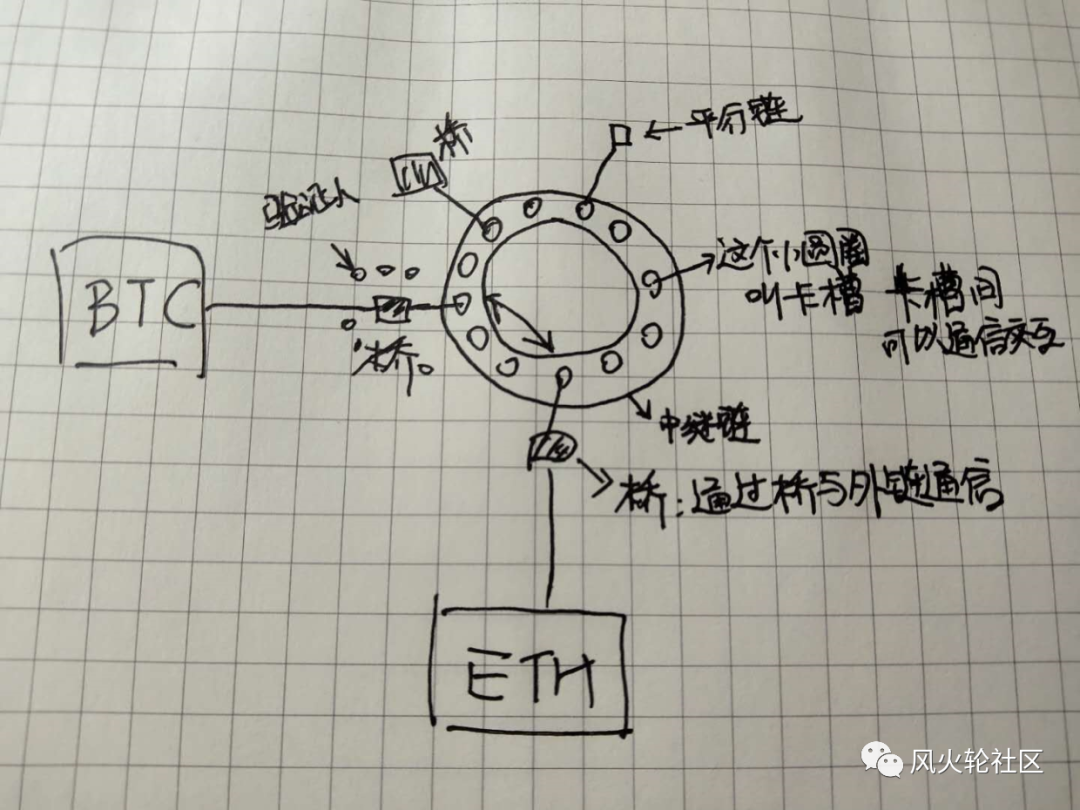 桥
平行链
验证人
BTC
这个小圆圈
叫卡槽 卡槽间
可以通信交互
桥。
中继链
桥：通过桥与外链通信
ETH
风火轮社区